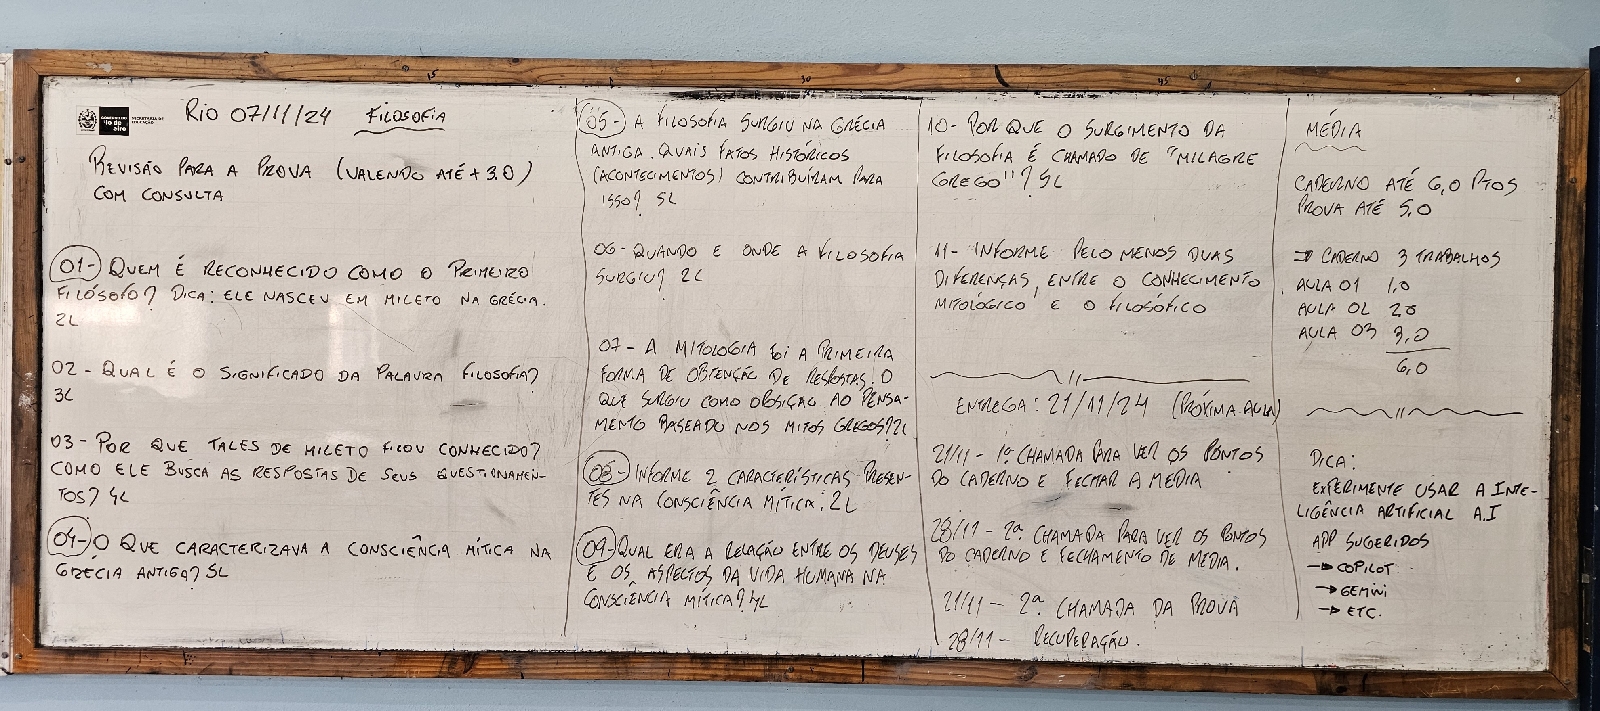 GOVERNO DO
Rio de
aneiro
SECRETARIA DE
EDUCAÇÃO
RIO 07/11/24 FILOSOFIA
REVISÃO PARA A PROVA (VALENDO ATÉ + 3.0)
COM CONSULTA
01- QUEM É RECONHECIDO COMO O PRIMEIRO
FILÓSOFO? DICA: ELE NASCEU EM MILETO NA GRÉCIA.
2L
02- QUAL É O SIGNIFICADO DA PALAVRA FILOSOFIA?
3L
03- POR QUE TALES DE MILETO FICOU CONHECIDO?
COMO ELE BUSCA AS RESPOSTAS DE SEUS QUESTIONAMEN-
TOS? 4L
04- O QUE CARACTERIZAVA A CONSCIÊNCIA MÍTICA NA
GRÉCIA ANTIGA? 5L
05- A FILOSOFIA SURGIU NA GRÉCIA
ANTIGA. QUAIS FATOS HISTÓRICOS
(ACONTECIMENTOS) CONTRIBUÍRAM PARA
ISSO? 5L
06- QUANDO E ONDE A FILOSOFIA
SURGIU? 2L
07- A MITOLOGIA FOI A PRIMEIRA
FORMA DE OBTENÇÃO DE RESPOSTAS. O
QUE SURGIU COMO OBSIÇÃO AO PENSA-
MENTO BASEADO NOS MITOS GREGOS? 2L
08- INFORME 2 CARACTERÍSTICAS PRESEN-
TES NA CONSCIÊNCIA MÍTICA: 2L
09- QUAL ERA A RELAÇÃO ENTRE OS DEUSES
E OS ASPECTOS DA VIDA HUMANA NA
CONSCIÊNCIA MÍTICA? 4L
10- POR QUE O SURGIMENTO DA
FILOSOFIA É CHAMADO DE "MILAGRE
GREGO"? 5L
11- INFORME PELO MENOS DUAS
DIFERENÇAS, ENTRE O CONHECIMENTO
MITOLÓGICO E O FILOSÓFICO
ENTREGA: 21/11/24 (PRÓXIMA AULA)
21/11 - 1ª CHAMADA PARA VER OS PONTOS
DO CADERNO E FECHAR A MÉDIA
28/11 - 2ª CHAMADA PARA VER OS PONTOS
DO CADERNO E FECHAMENTO DE MÉDIA.
21/11 - 2ª CHAMADA DA PROVA
28/11 - RECUPERAÇÃO.
MÉDIA
CADERNO ATÉ 6,0 PTOS
PROVA ATÉ 5,0
→ CADERNO 3 TRABALHOS
AULA 01 1.0
AULA 02 2.0
AULA 03 3,0
6,0
DICA:
EXPERIMENTE USAR A INTE-
LIGÊNCIA ARTIFICIAL A.I
APP SUGERIDOS
→ COPILOT
→ GEMINI
→ ETC.